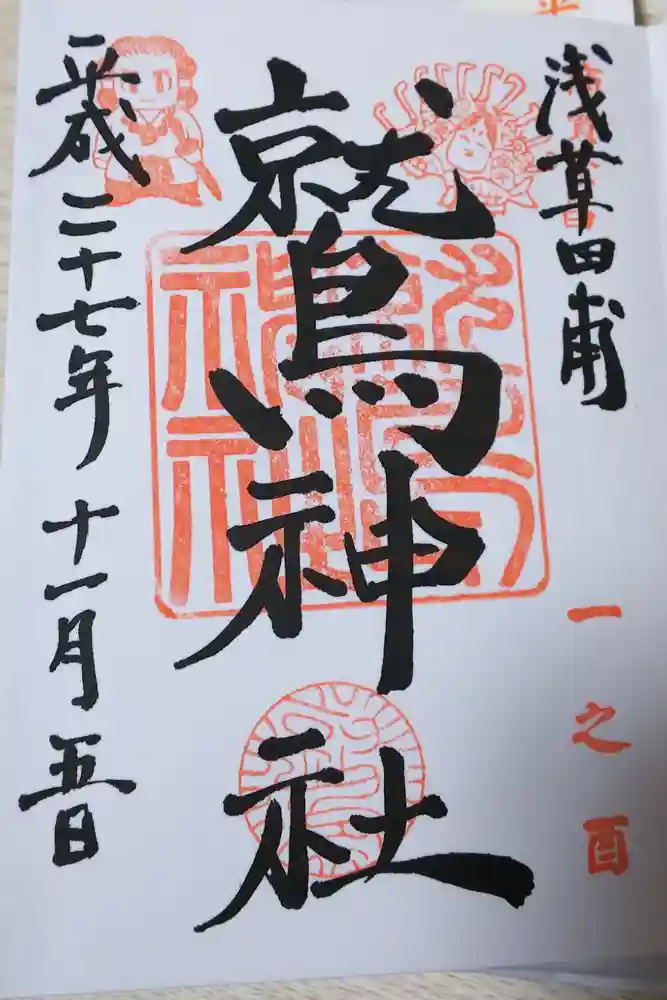 浅草田甫
一之酉
鷲神社
平成二十七年十一月五日